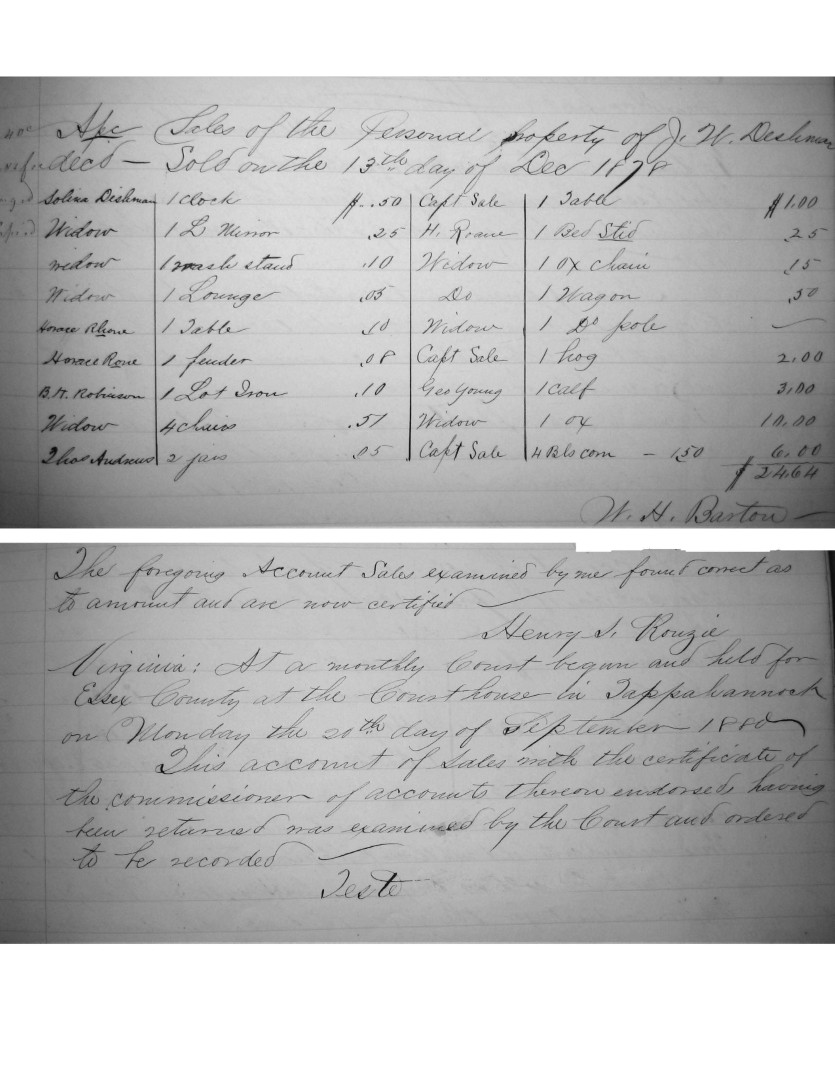 A/c Sales of the Personal property of J. W. Deshman
decd — Sold on the 13th day of Dec 1878
Solina Dishman 1 clock $ .. 50 Capt Sale 1 Table $1.00
Widow 1 L Mirror .25 H. Roane 1 Bed Stid 25
widow 1 wash stand .10 Widow 1 ox chain 15
Widow 1 Lounge .05 Do 1 Wagon .50
Horace Rhone 1 Table .10 Widow 1 Do pole —
Horace Rone 1 fender .08 Capt Sale 1 hog 2.00
B.H. Robinson 1 Lot Iron .10 Geo Young 1 calf 3.00
Widow 4 chairs .51 Widow 1 ox 10.00
Thos Andrews 2 jars .05 Capt Sale 4 Bls corn — 1.50 6.00
$ 24.64
W. H. Barton —
The foregoing Account Sales examined by me found correct as
to amount and are now certified —
Henry S. Rouzie
Virginia: At a monthly Court begun and held for
Essex County at the Courthouse in Tappahannock
on Monday the 20th day of September 1880
This account of sales with the certificate of
the commissioner of accounts thereon endorsed, having
been returned was examined by the Court and ordered
to be recorded —
Teste